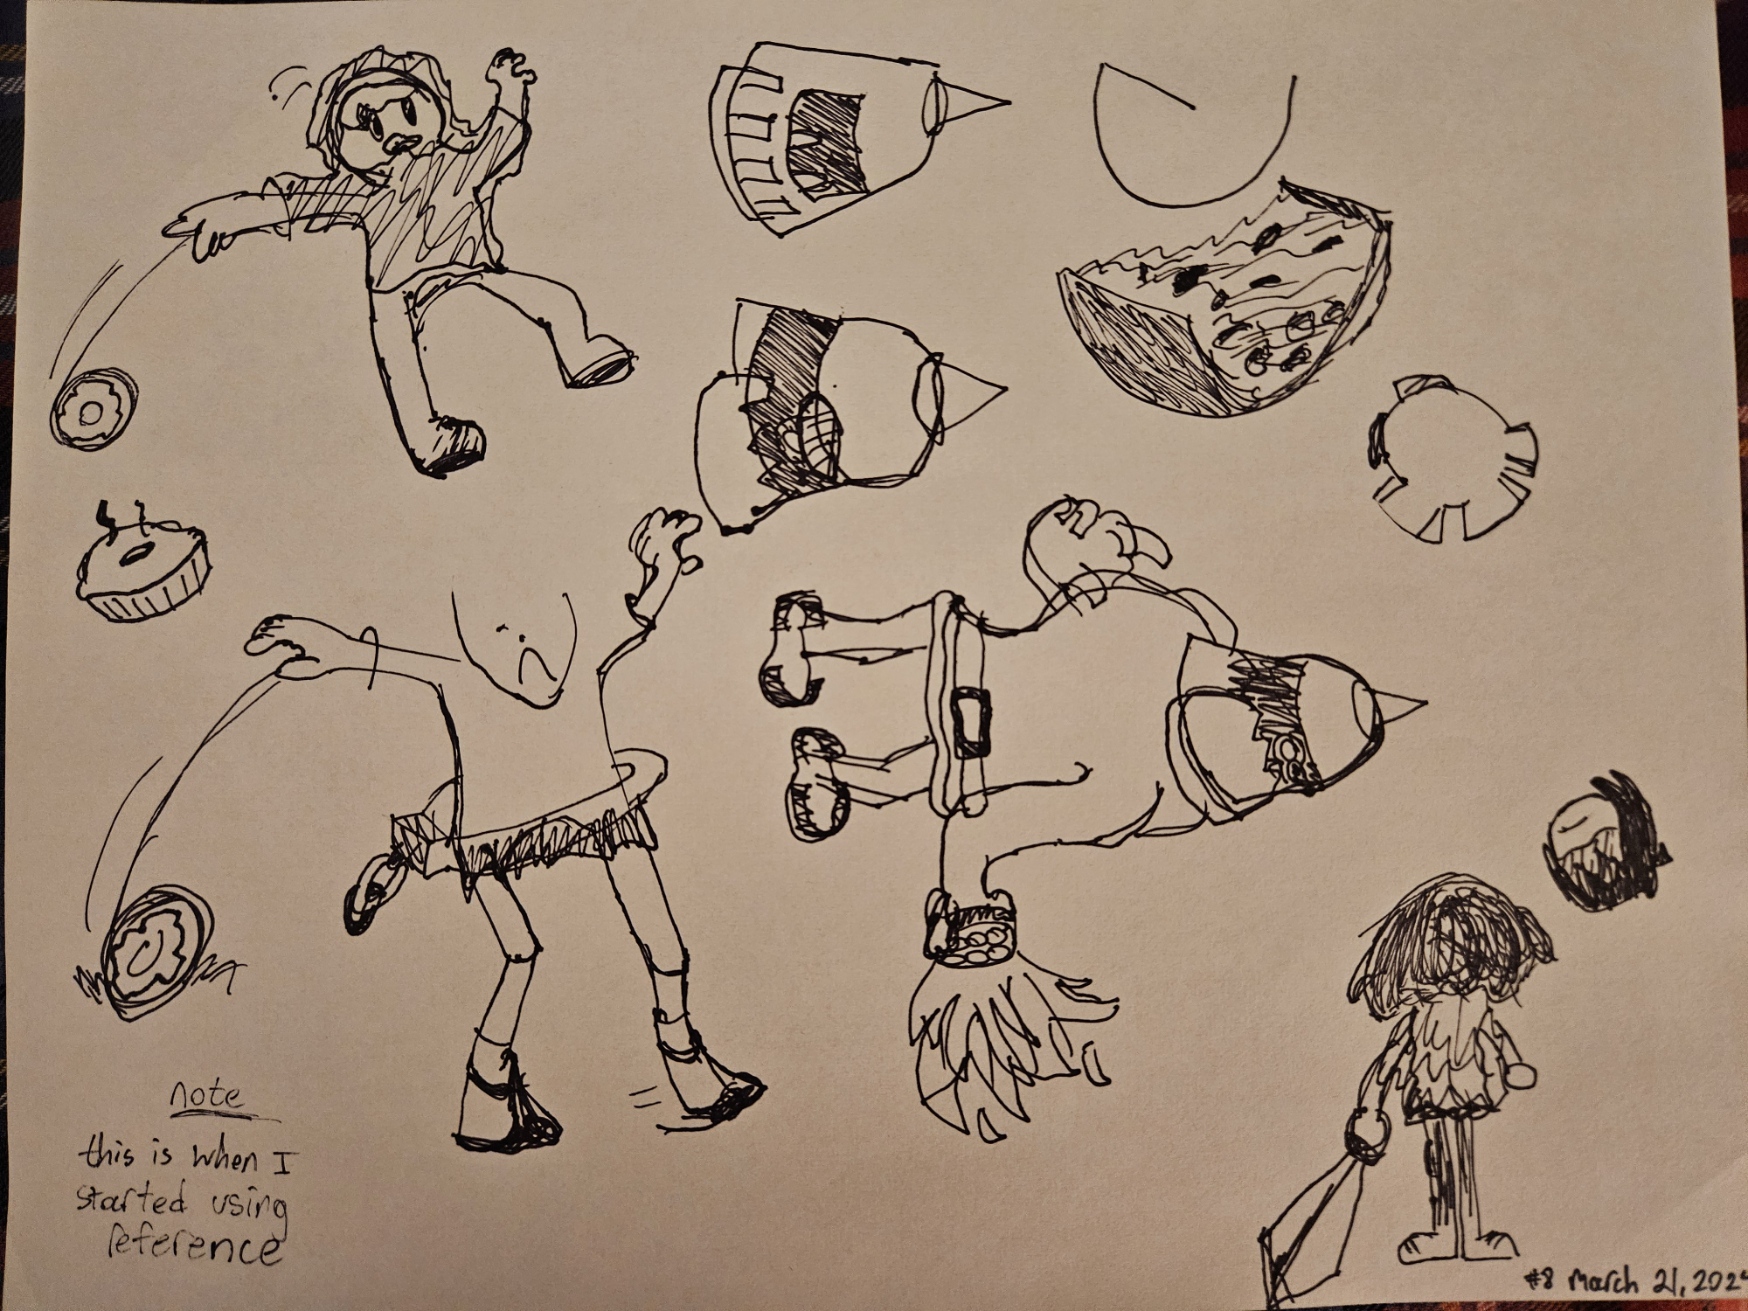 note
this is when I
started using
reference
#8 March 21, 202